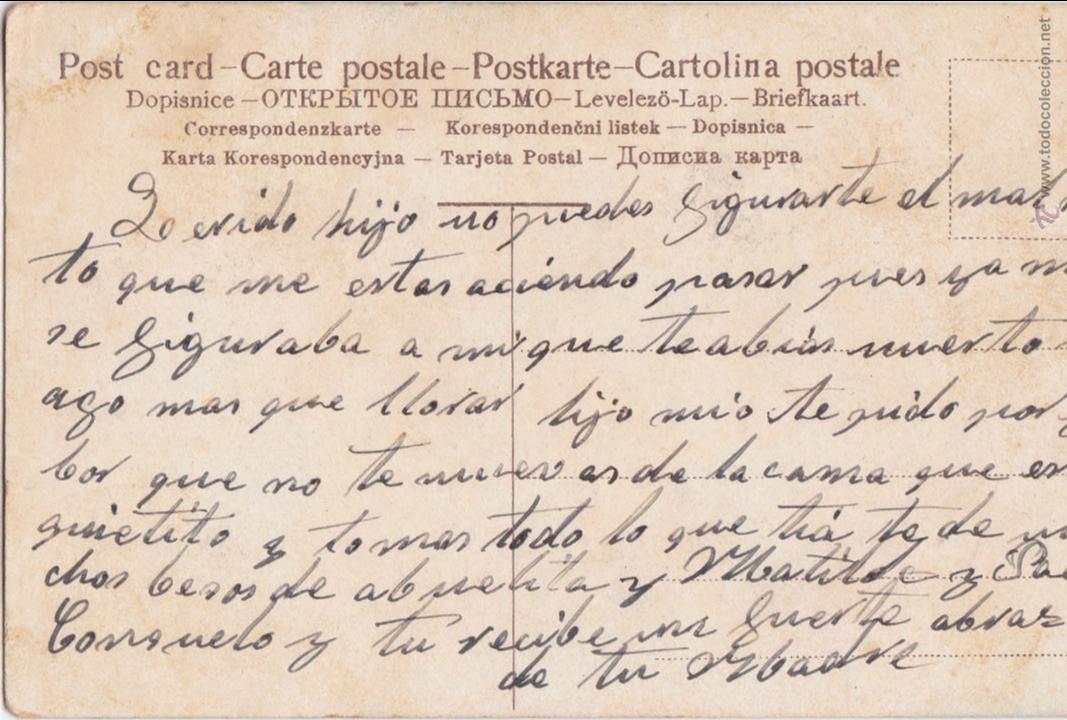 Post card – Carte postale – Postkarte – Cartolina postale
Dopisnice – ОТКРЫТОЕ ПИСЬМО – Levelező-Lap. – Briefkaart.
Correspondenzkarte – Korespondenčni listek – Dopisnica –
Karta Korespondencyjna – Tarjeta Postal – Дописна карта
Querido hijo no puedes figurarte el mal
to que me estas aciendo pasar pues ya
se figuraba a mi que teabias muerto
ago mas que llorar hijo mio te pido por
bor que no te muevas de la cama que es
quietito y tomas todo lo que tia te de mu
chos besos de abuelita y Matilde y
Consuelo y tu recibe un fuerte abraz
de tu Madre
www.todocoleccion.net